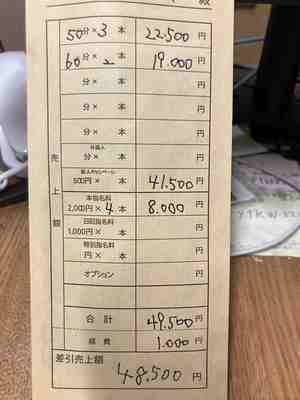 50分×3本 22.500円
60分×2本 19.000円
分×本 円
分×本 円
分×本 円
外国人
分×本 円
新人キャンペーン
500円×本 41.500円
本指名料
2,000円×4本 8.000円
日記指名料
1,000円×本 円
特別指名料
円×本 円
オプション 円
売上額
合計 49.500円
経費 1.000円
差引売上額
48.500円